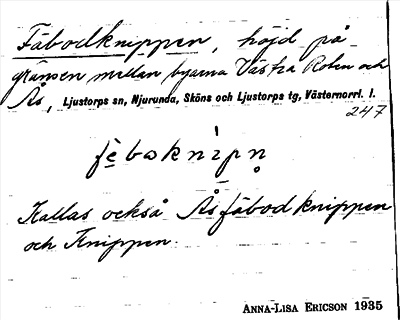 Fäbodknippen, höjd på
gränsen mellan byarna Västra Roten och
Ås, Ljustorps sn, Njurunda, Sköns och Ljustorps tg, Västernorrl. l.
247
fèbɷknìpn̥
Kallas också Åsfäbodknippen
och Knippen.
ANNA-LISA ERICSON 1935